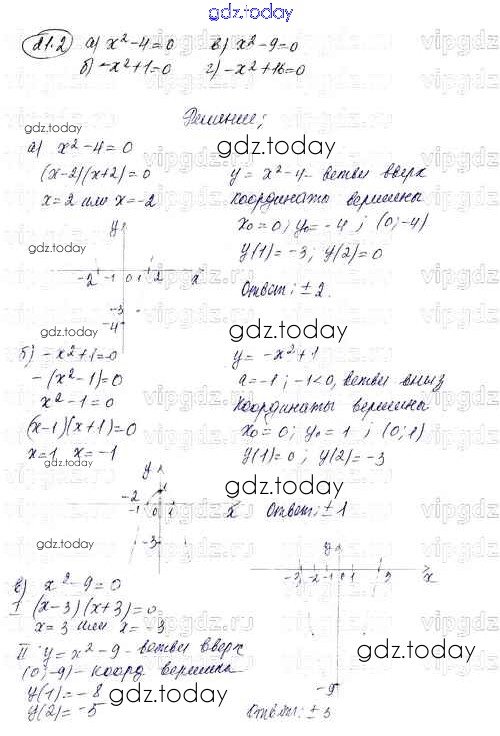 gdz.today
21.2 а) x²-4=0 в) x²-9=0
б) -x²+1=0 г) -x²+16=0
Решение;
gdz.today
а) x²-4=0
(x-2)(x+2)=0
x=2 или x=-2
gdz.today
y = x²-4 - ветви вверх
координаты вершины
x₀=0; y₀=-4; (0;-4)
y(1)=-3; y(2)=0
Ответ: ±2.
gdz.today
y
-2 -1 0 1 2 x
-3
-4
gdz.today
gdz.today
б) -x²+1=0
-(x²-1)=0
x²-1=0
(x-1)(x+1)=0
x=1 x=-1
y = -x²+1
a=-1; -1<0, ветви вниз
координаты вершины
x₀=0; y₀=1; (0;1)
y(1)=0; y(2)=-3
gdz.today
Ответ: ±1
y
-2 -1 0 1 x
-3
gdz.today
gdz.today
в) x²-9=0
I (x-3)(x+3)=0
x=3 или x=-3
II y=x²-9 - ветви вверх
(0;-9) - коорд вершина
y(1)=-8
y(2)=-5
gdz.today
y
-3 -2 -1 0 1 3 x
-9
Ответ: ±3
vipgdz.ru